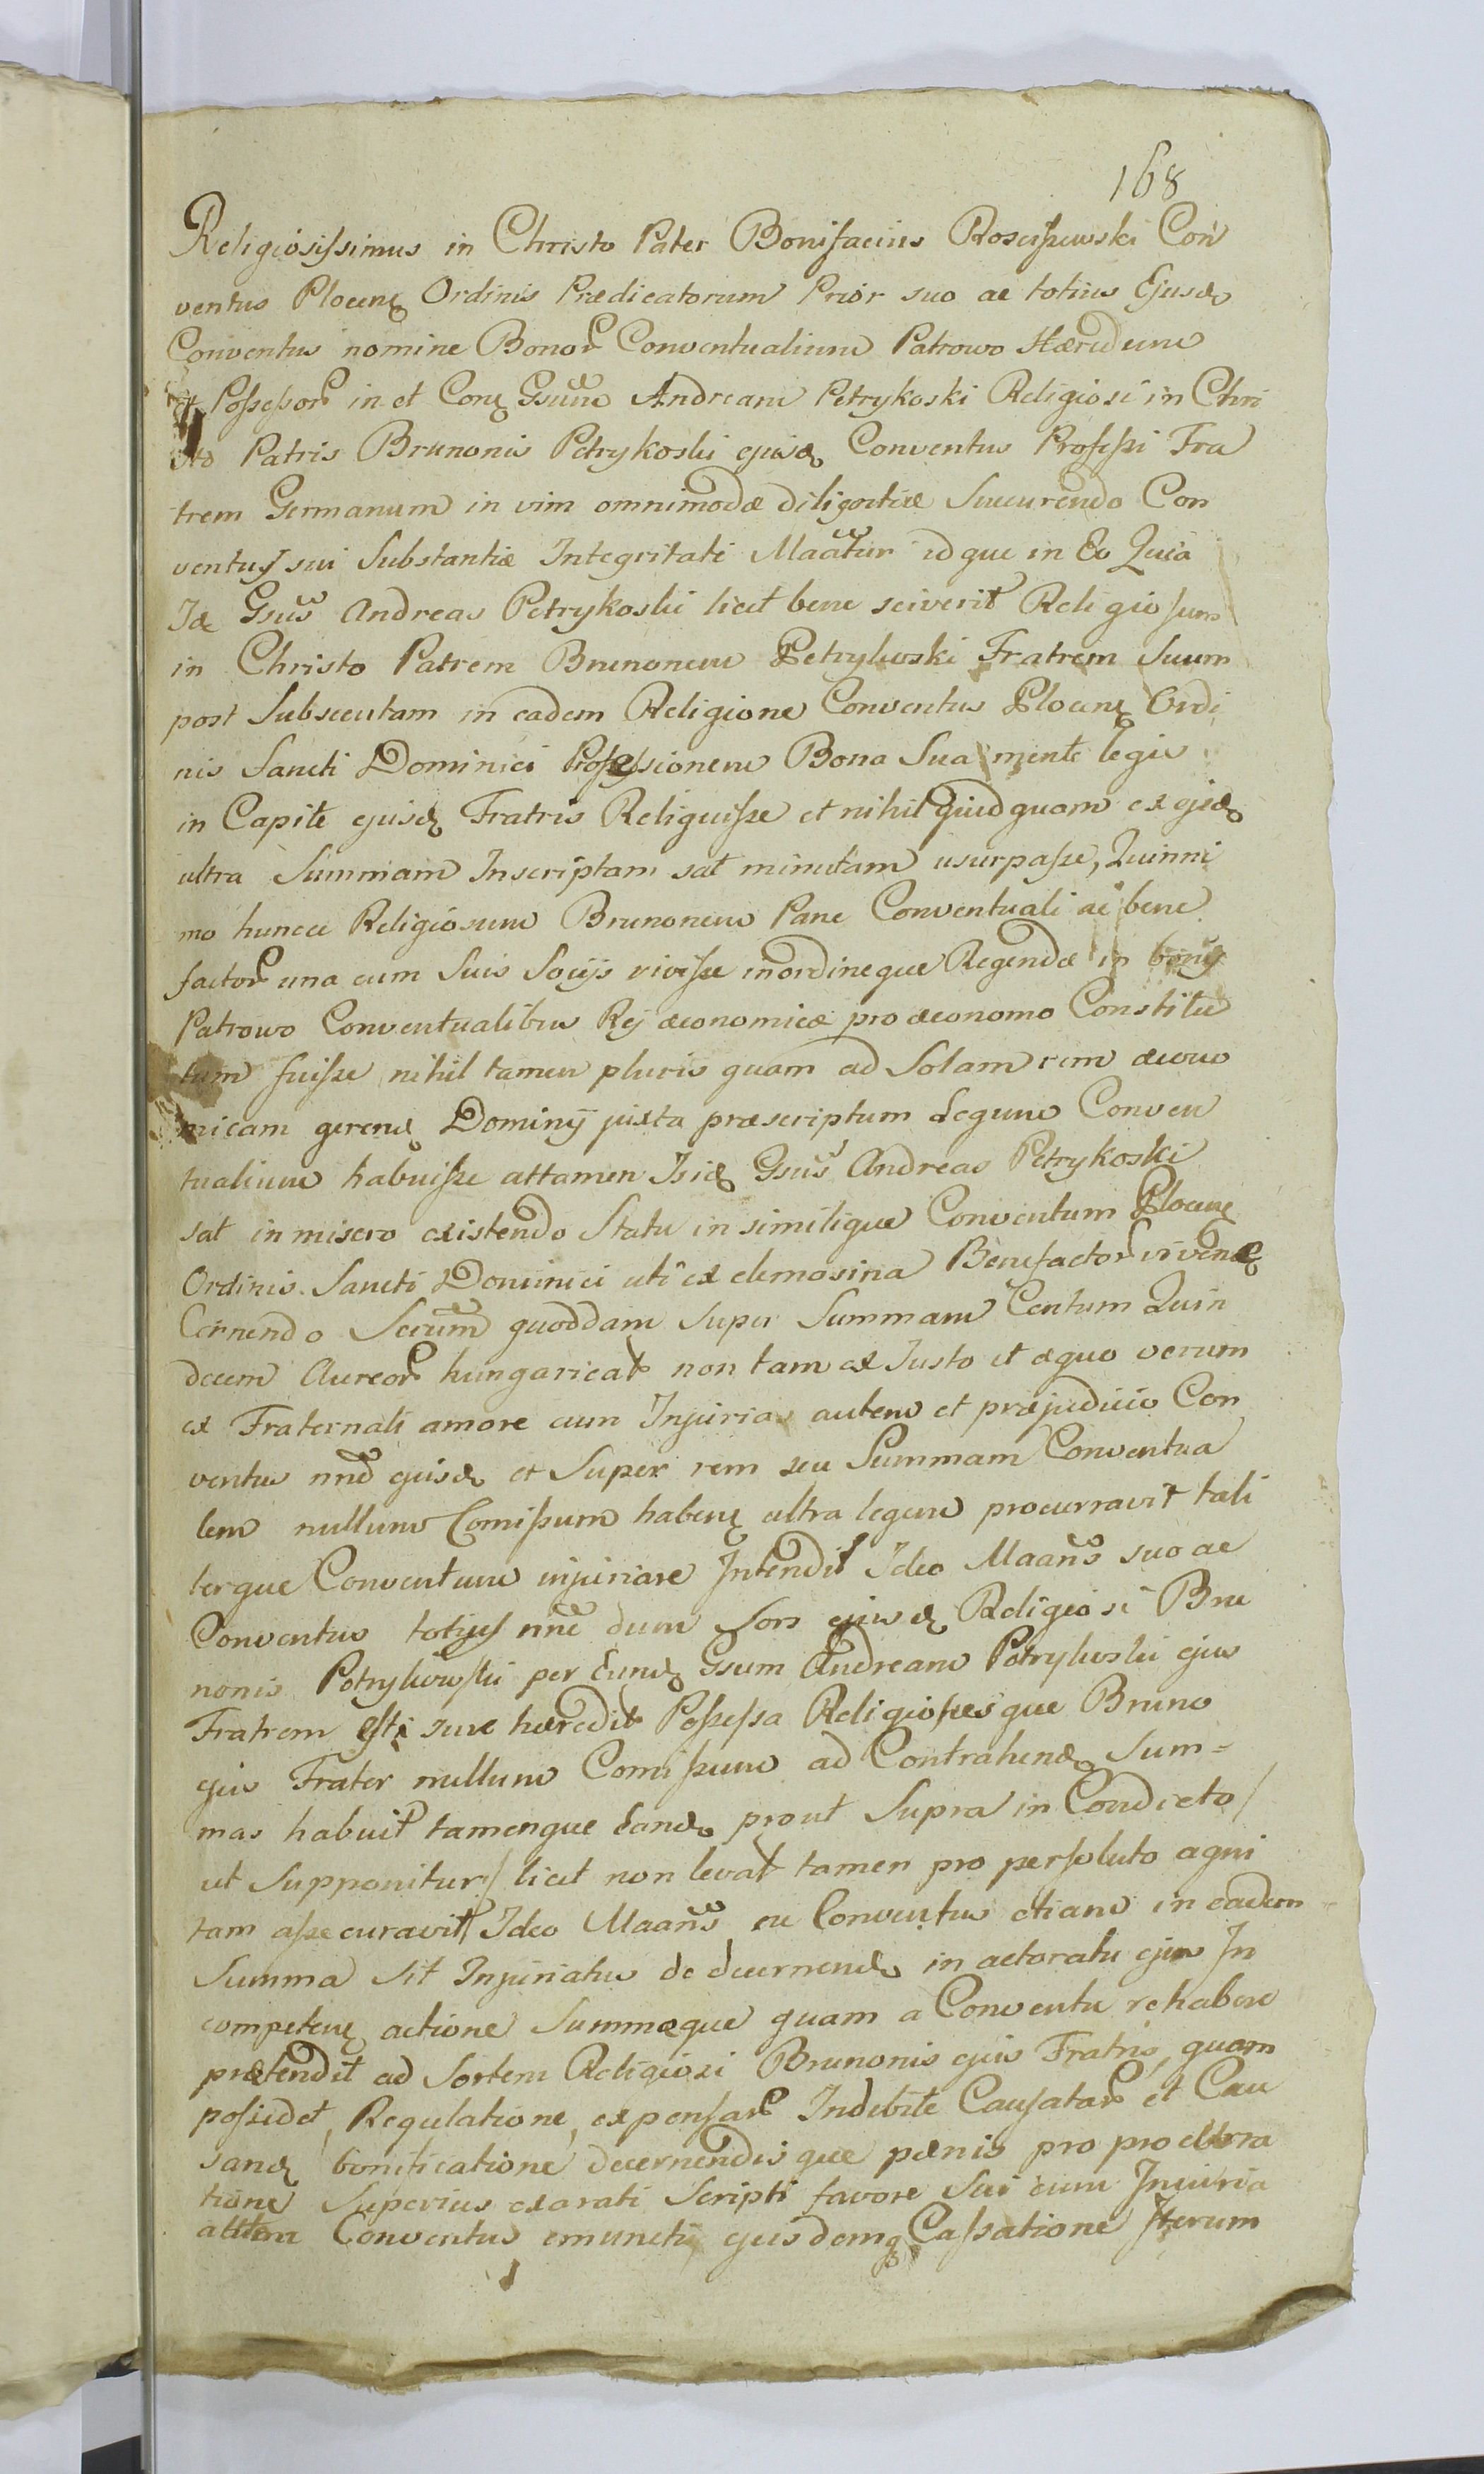 168
Religiosissimus in Christo Pater Bonifacius Rosciszewski Con
ventus Plocen Ordinis Prædicatorum Prior suo ac totius Ejusd
Conventus nomine Bonor Conventualium Patrowo Hæredum
et Possessor in et Con Gsum Andream Petrykoski Religiosi in Chri
sto Patris Brunonis Petrykoski ejusd Conventus Professi Fra
trem Germanum in vim omnimodæ diligentiæ Sucurendo Con
ventus sui Substantiæ Integritati Maatur idque in Eo Quia
Id Gsus Andreas Petrykoski licet bene sciverit Religiosum
in Christo Patrem Brunonem Petrykoski Fratrem Suum
post Subsecutam in eadem Religione Conventus Plocen Ordi
nis Sancti Dominici Professionem Bona Sua mente legis
in Capite ejusd Fratris Reliquisse et nihil quidquam ex ejsd
ultra Summam Inscriptam sat minutam usurpasse, Quinni
mo huncce Religiosum Brunonem Pane Conventuali ac bene
factor una cum Suis Socijs vivisse inordineque Regendæ in bonis
Patrowo Conventualibus Rej æconomicæ pro æconomo Constitu
tum fuisse nihil tamen pluris quam ad Solam rem æcono
micam gerend Dominij juxta præscriptum Legum Conven
tualium habuisse attamen Isid Gsus Andreas Petrykoski
sat in misero existendo Statu in similique Conventum Plocen
Ordinis Sancti Dominici uti ex elemosina Benefactor vivend
Cernendo Scrum quoddam super Summam Centum Quin
decem Aureor hungarical non tam ex Justo et æquo verum
ex Fraternali amore cum Injuria autem et præjudicio Con
ventus nnd ejusd et Super rem seu Summam Conventua
lem nullum Comissum haben ultra legem procurravit tali
terque Conventum injuriare Intendit Ideo Maans suo ac
Conventus totius nne dum Sors ejusd Religiosi Bru
nonis Petrykowski per Eund Gsum Andream Petrykoski ejus
Fratrem est jure hæredit Possessa Religiosusque Bruno
ejus Frater nullum Comissum ad Contrahend Sum=
mas habuit tamenque Eand prout Supra in Condicto/
ut Supponitur/ licet non levat tamen pro persoluto agni
tam assecuravit Ideo Maans eu Conventus etiam in eadem
Summa sit Injuriatus de decernend in actoratu ejus In
competen actione Summæque quam a Conventu rehabere
prætendit ad Sortem Religiosi Brunonis ejus Fratris, quam
possidet, Regulatione, expensar Indebite Causatar et Cau
sand bonificatione decernendisque pænis pro procura
tione Superius exarati Scripti favore Sui cum Injuria
autem Conventus emuncti, ejusdemq Cassatione Iterum